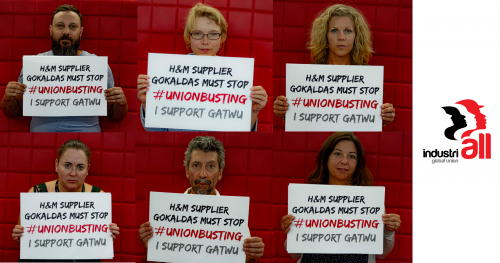 H&M SUPPLIER
GOKALDAS MUST STOP
#UNIONBUSTING
I SUPPORT GATWU
H&M SUPPLIER
GOKALDAS MUST STOP
#UNIONBUSTING
I SUPPORT GATWU
H&M SUPPLIER
GOKALDAS MUST STOP
#UNIONBUSTING
I SUPPORT GATWU
H&M SUPPLIER
GOKALDAS MUST STOP
#UNIONBUSTING
I SUPPORT GATWU
H&M SUPPLIER
GOKALDAS MUST STOP
#UNIONBUSTING
I SUPPORT GATWU
H&M SUPPLIER
GOKALDAS MUST STOP
#UNIONBUSTING
I SUPPORT GATWU
industriall
global union